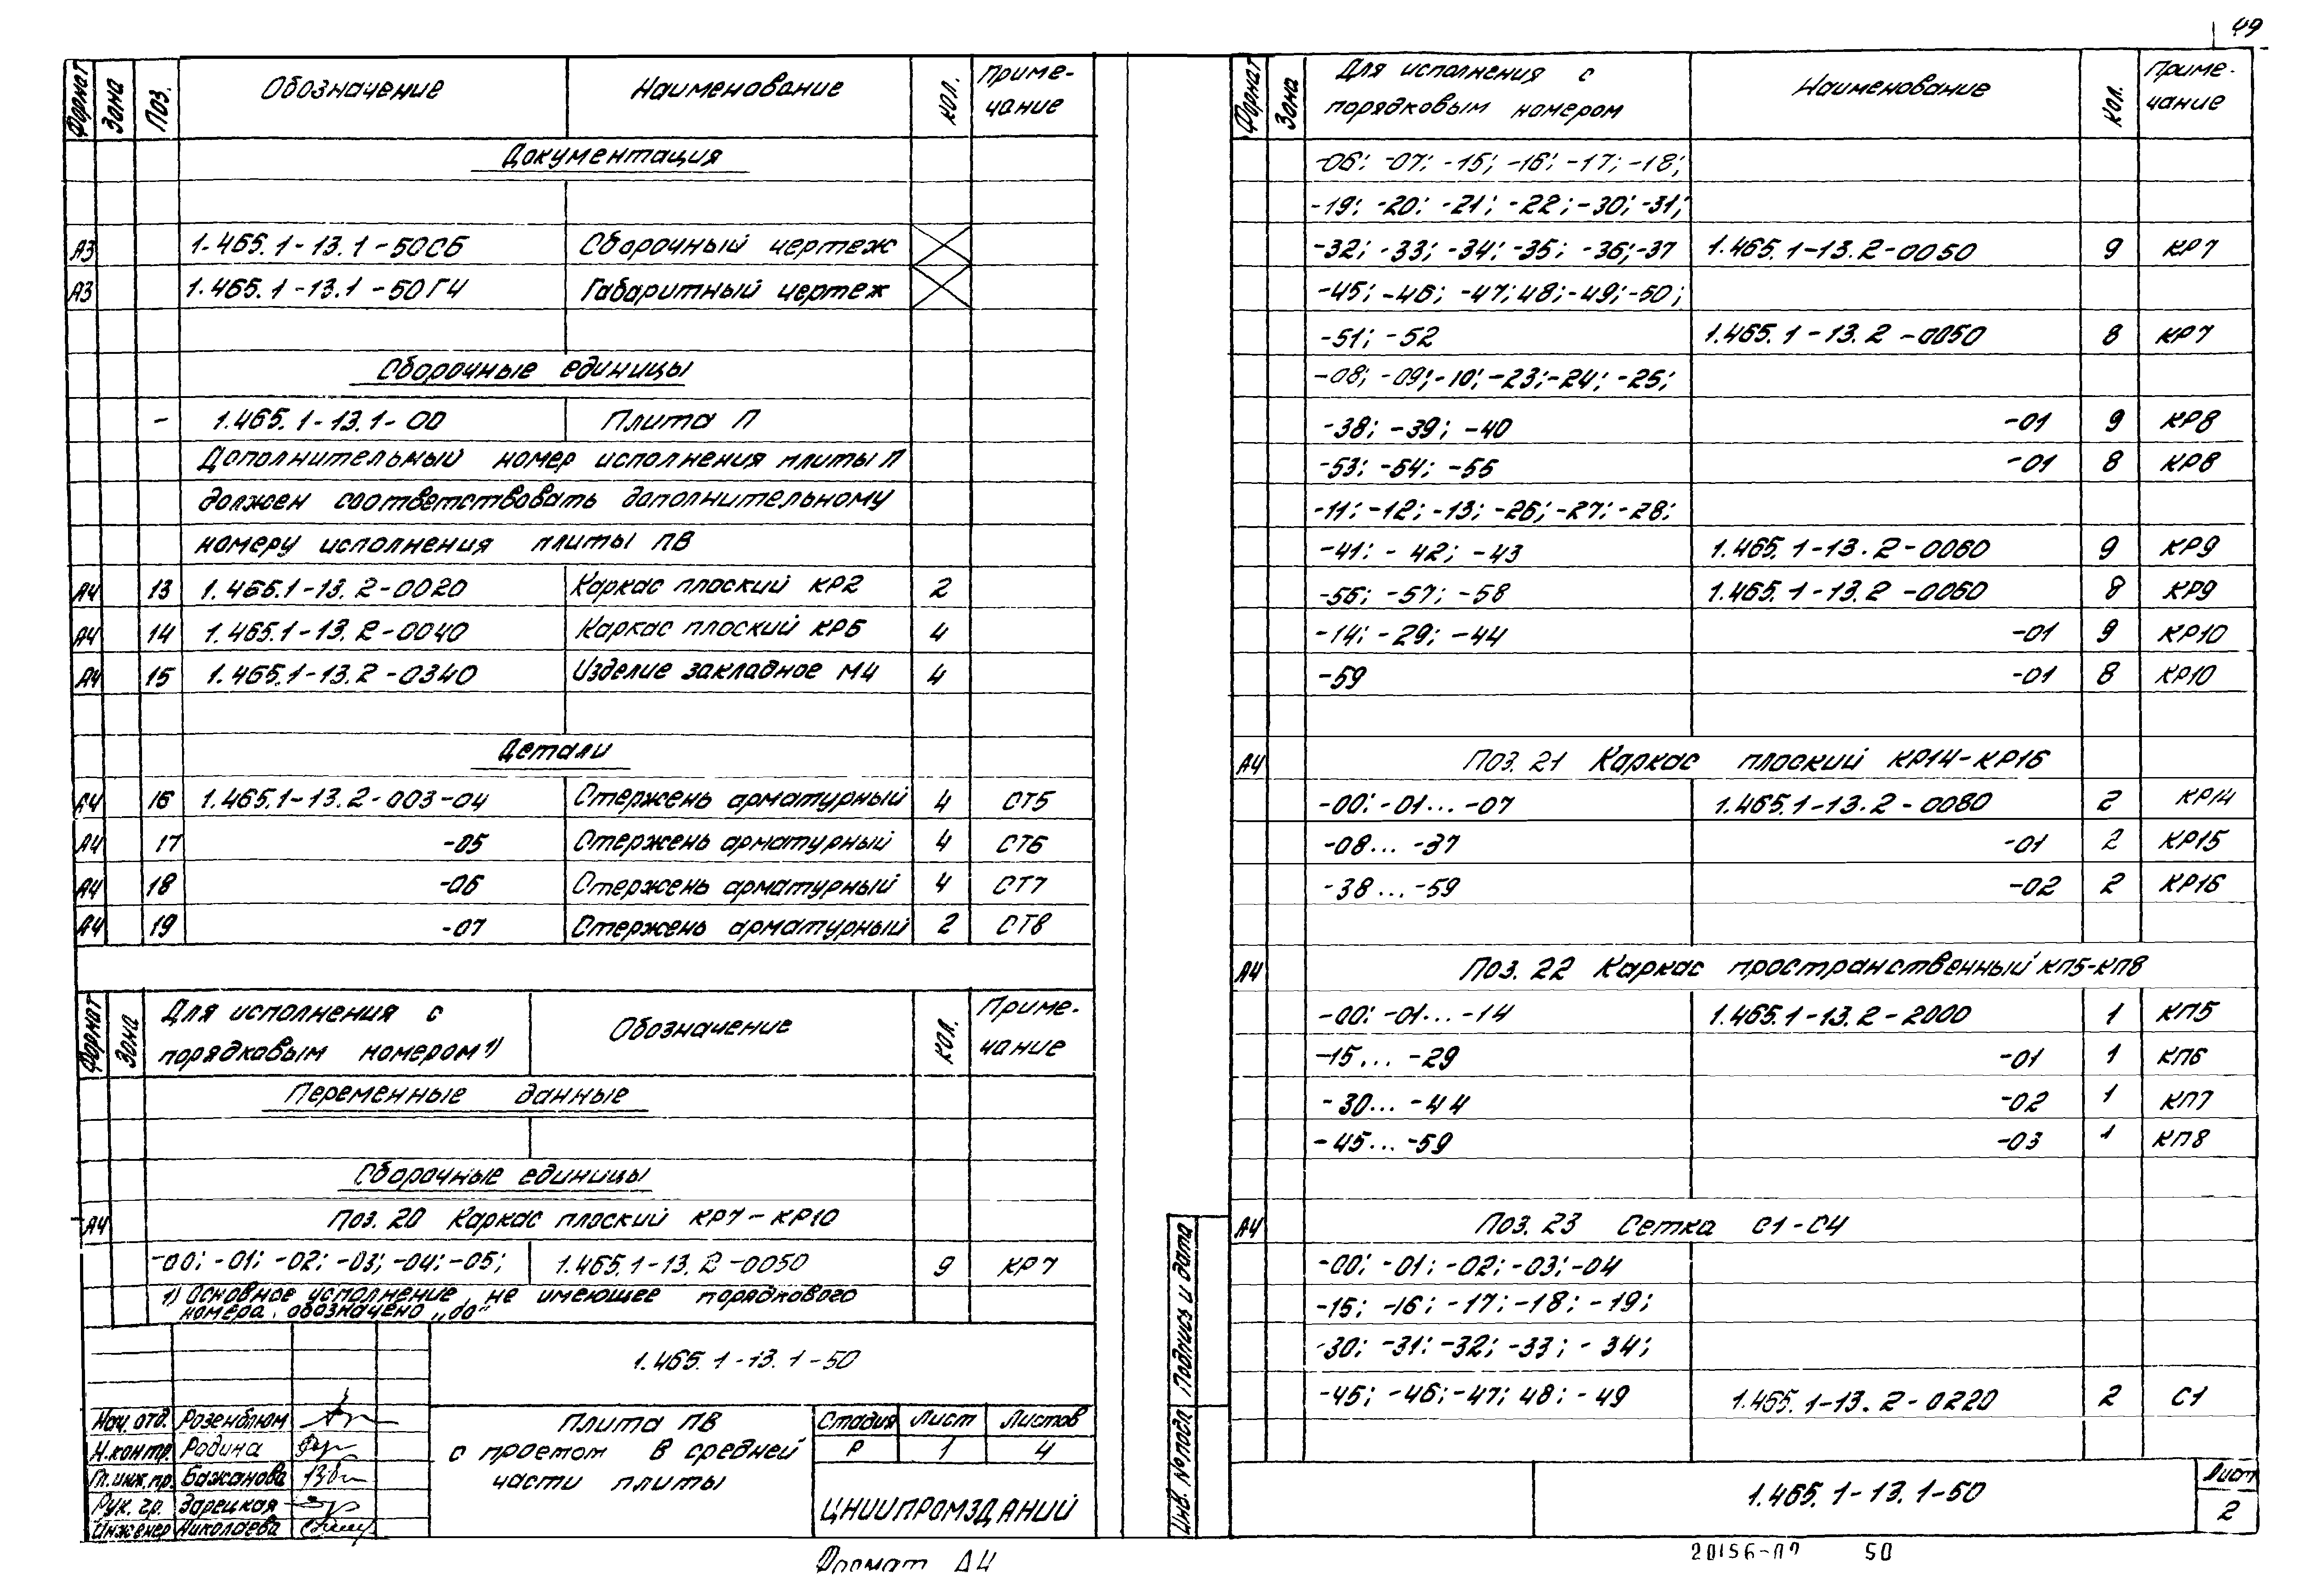 49
Формат Зона Поз. Обозначение Наименование Кол. Приме-
чание
Документация
А3 1.465.1-13.1-50СБ Сборочный чертеж
А3 1.465.1-13.1-50ГЧ Габаритный чертеж
Сборочные единицы
- 1.465.1-13.1-00 Плита П
Дополнительный номер исполнения плиты П
должен соответствовать дополнительному
номеру исполнения плиты ПВ
А4 13 1.465.1-13.2-0020 Каркас плоский КР2 2
А4 14 1.465.1-13.2-0040 Каркас плоский КР6 4
А4 15 1.465.1-13.2-0340 Изделие закладное М4 4
Детали
А4 16 1.465.1-13.2-003-04 Стержень арматурный 4 СТ5
А4 17 -05 Стержень арматурный 4 СТ6
А4 18 -06 Стержень арматурный 4 СТ7
А4 19 -07 Стержень арматурный 2 СТ8
Формат Зона Для исполнения с
порядковым номером 1) Обозначение Кол. Приме-
чание
Переменные данные
Сборочные единицы
А4 Поз. 20 Каркас плоский КР7-КР10
-00; -01; -02; -03; -04; -05; 1.465.1-13.2-0050 9 КР7
1) Основное исполнение, не имеющее порядкового
номера, обозначено „00“
1.465.1-13.1-50
Нач. отд. Розенблюм
Н.контр. Родина
Гл.инж.пр. Бажанова
Рук. гр. Зарецкая
Инженер Николаева
Плита ПВ
с проемом в средней
части плиты
Стадия Лист Листов
Р 1 4
ЦНИИПРОМЗДАНИЙ
Формат А4
Формат Зона Для исполнения с
порядковым номером Наименование Кол. Приме-
чание
-06; -07; -15; -16; -17; -18;
-19; -20; -21; -22; -30; -31;
-32; -33; -34; -35; -36; -37 1.465.1-13.2-0050 9 КР7
-45; -46; -47; 48; -49; -50;
-51; -52 1.465.1-13.2-0050 8 КР7
-08; -09; -10; -23; -24; -25;
-38; -39; -40 -01 9 КР8
-53; -54; -55 -01 8 КР8
-11; -12; -13; -26; -27; -28;
-41; -42; -43 1.465.1-13.2-0060 9 КР9
-56; -57; -58 1.465.1-13.2-0060 8 КР9
-14; -29; -44 -01 9 КР10
-59 -01 8 КР10
А4 Поз. 21 Каркас плоский КР14-КР16
-00; -01... -07 1.465.1-13.2-0080 2 КР14
-08... -37 -01 2 КР15
-38... -59 -02 2 КР16
А4 Поз. 22 Каркас пространственный КП5-КП8
-00; -01... -14 1.465.1-13.2-2000 1 КП5
-15... -29 -01 1 КП6
-30... -44 -02 1 КП7
-45... -59 -03 1 КП8
А4 Поз. 23 Сетка С1-С4
-00; -01; -02; -03; -04
-15; -16; -17; -18; -19;
-30; -31; -32; -33; -34;
-45; -46; -47; 48; -49 1.465.1-13.2-0220 2 С1
Инв. № подл Подпись и дата
1.465.1-13.1-50
Лист
2
20156-02 50